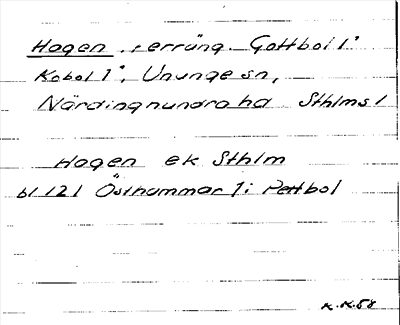 Hagen, terräng. Gottbol 1:
Kobol 1:, Ununge sn,
Närdinghundra hd Sthlms l
Hagen ek Sthlm
bl 121 Östhammar 1: Pettbol
K. K. 58